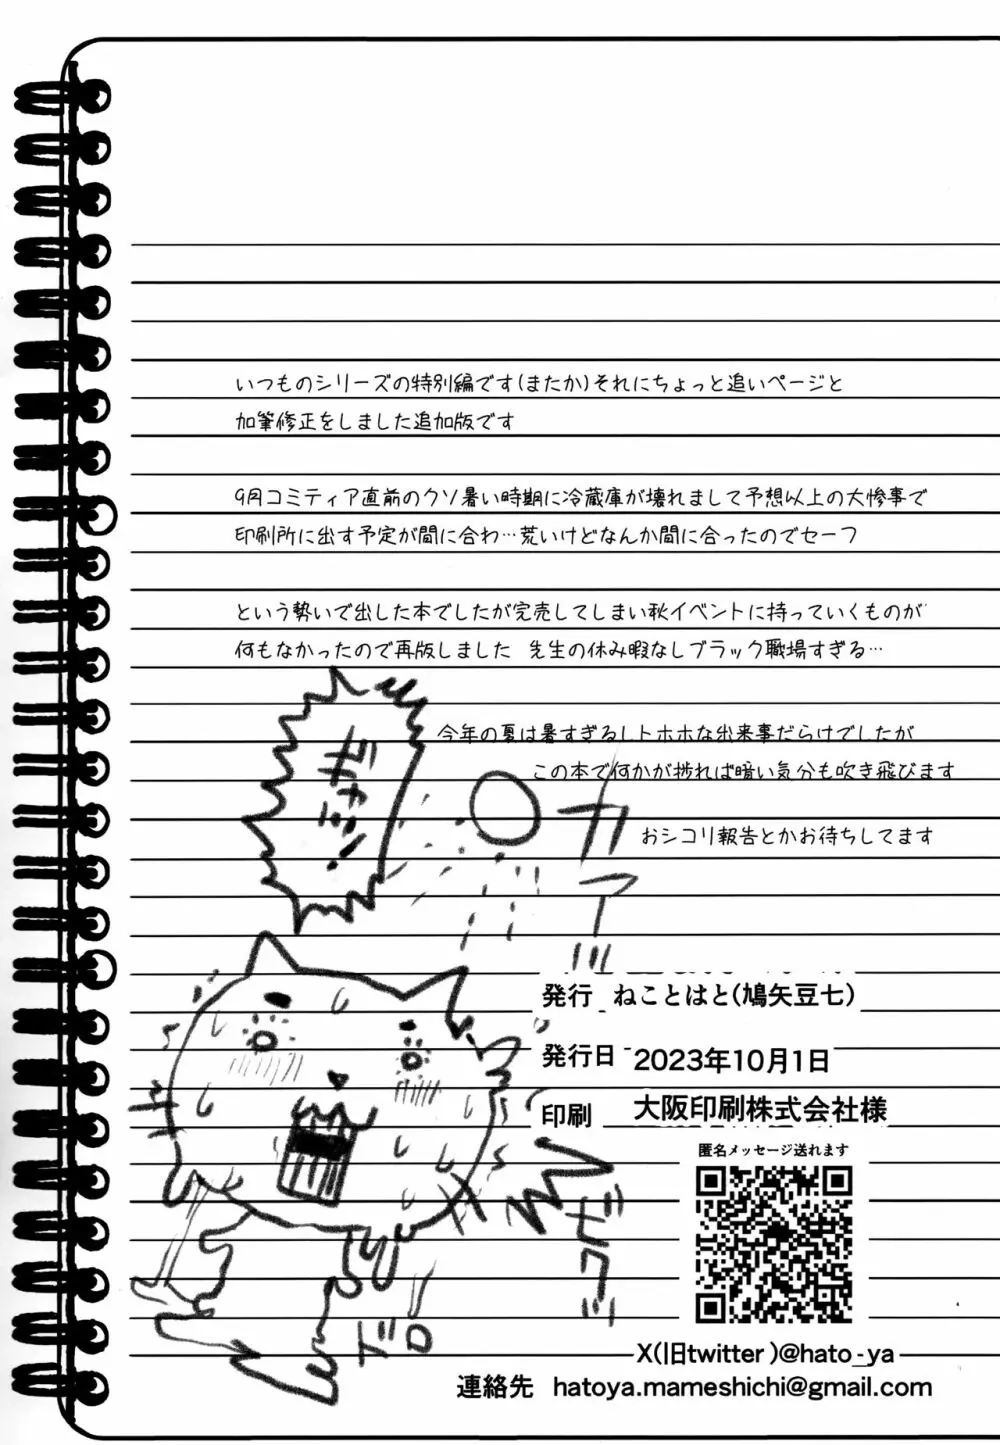 いつものシリーズの特別編です(またか)それにちょっと追いページと
加筆修正をしました追加版です
9月コミティア直前のクソ暑い時期に冷蔵庫が壊れまして予想以上の大惨事で
印刷所に出す予定が間に合わ…荒いけどなんか間に合ったのでセーフ
という勢いで出した本でしたが完売してしまい秋イベントに持っていくものが
何もなかったので再版しました 先生の休み暇なしブラック職場すぎる…
今年の夏は暑すぎるしトホホな出来事だらけでしたが
この本で何かが捗れば暗い気分も吹き飛びます
おシコリ報告とかお待ちしてます
発行 ねことはと(鳩矢豆七)
発行日 2023年10月1日
印刷 大阪印刷株式会社様
匿名メッセージ送れます
X(旧twitter)@hato_ya
連絡先 hatoya.mameshichi@gmail.com